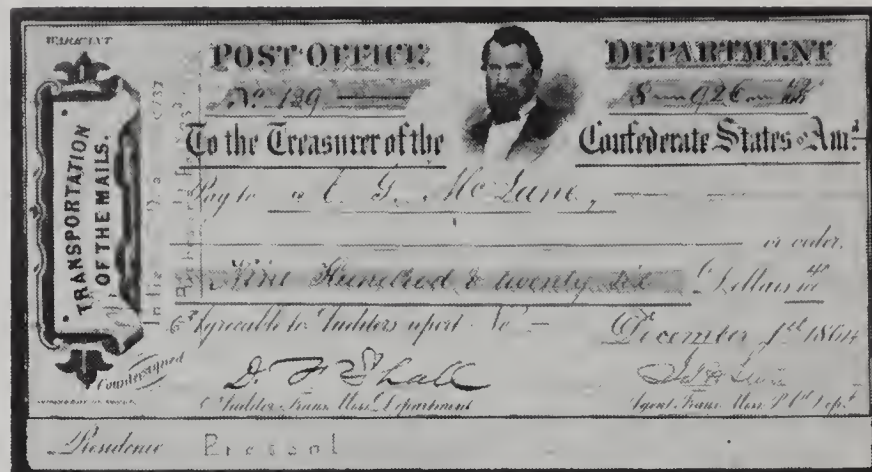 WARRANT
POST OFFICE DEPARTMENT
No 129 $ 926
To the Treasurer of the Confederate States of Am:
Pay to G. McLane,
or order,
Nine Hundred & twenty six Dollars
Agreeable to Auditors report No December 1st 1864
TRANSPORTATION
OF THE MAILS.
Countersigned
D. F. Shall
Auditor Trans. Miss. Department Agent, Trans. Miss. P.O. Dept.
Residence Present